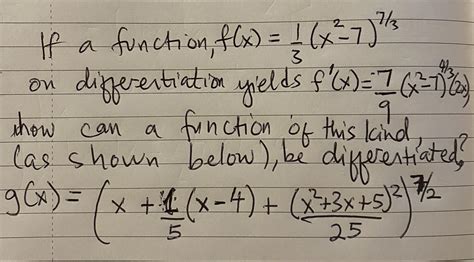 If a function, f(x) = 1/3 (x²-7)^7/3
on differentiation yields f'(x) = 7/9 (x²-7)^4/3 (2x)
how can a function of this kind,
(as shown below), be differentiated?
g(x) = (x + 1/5 (x-4) + (x²+3x+5)²/25)^7/2